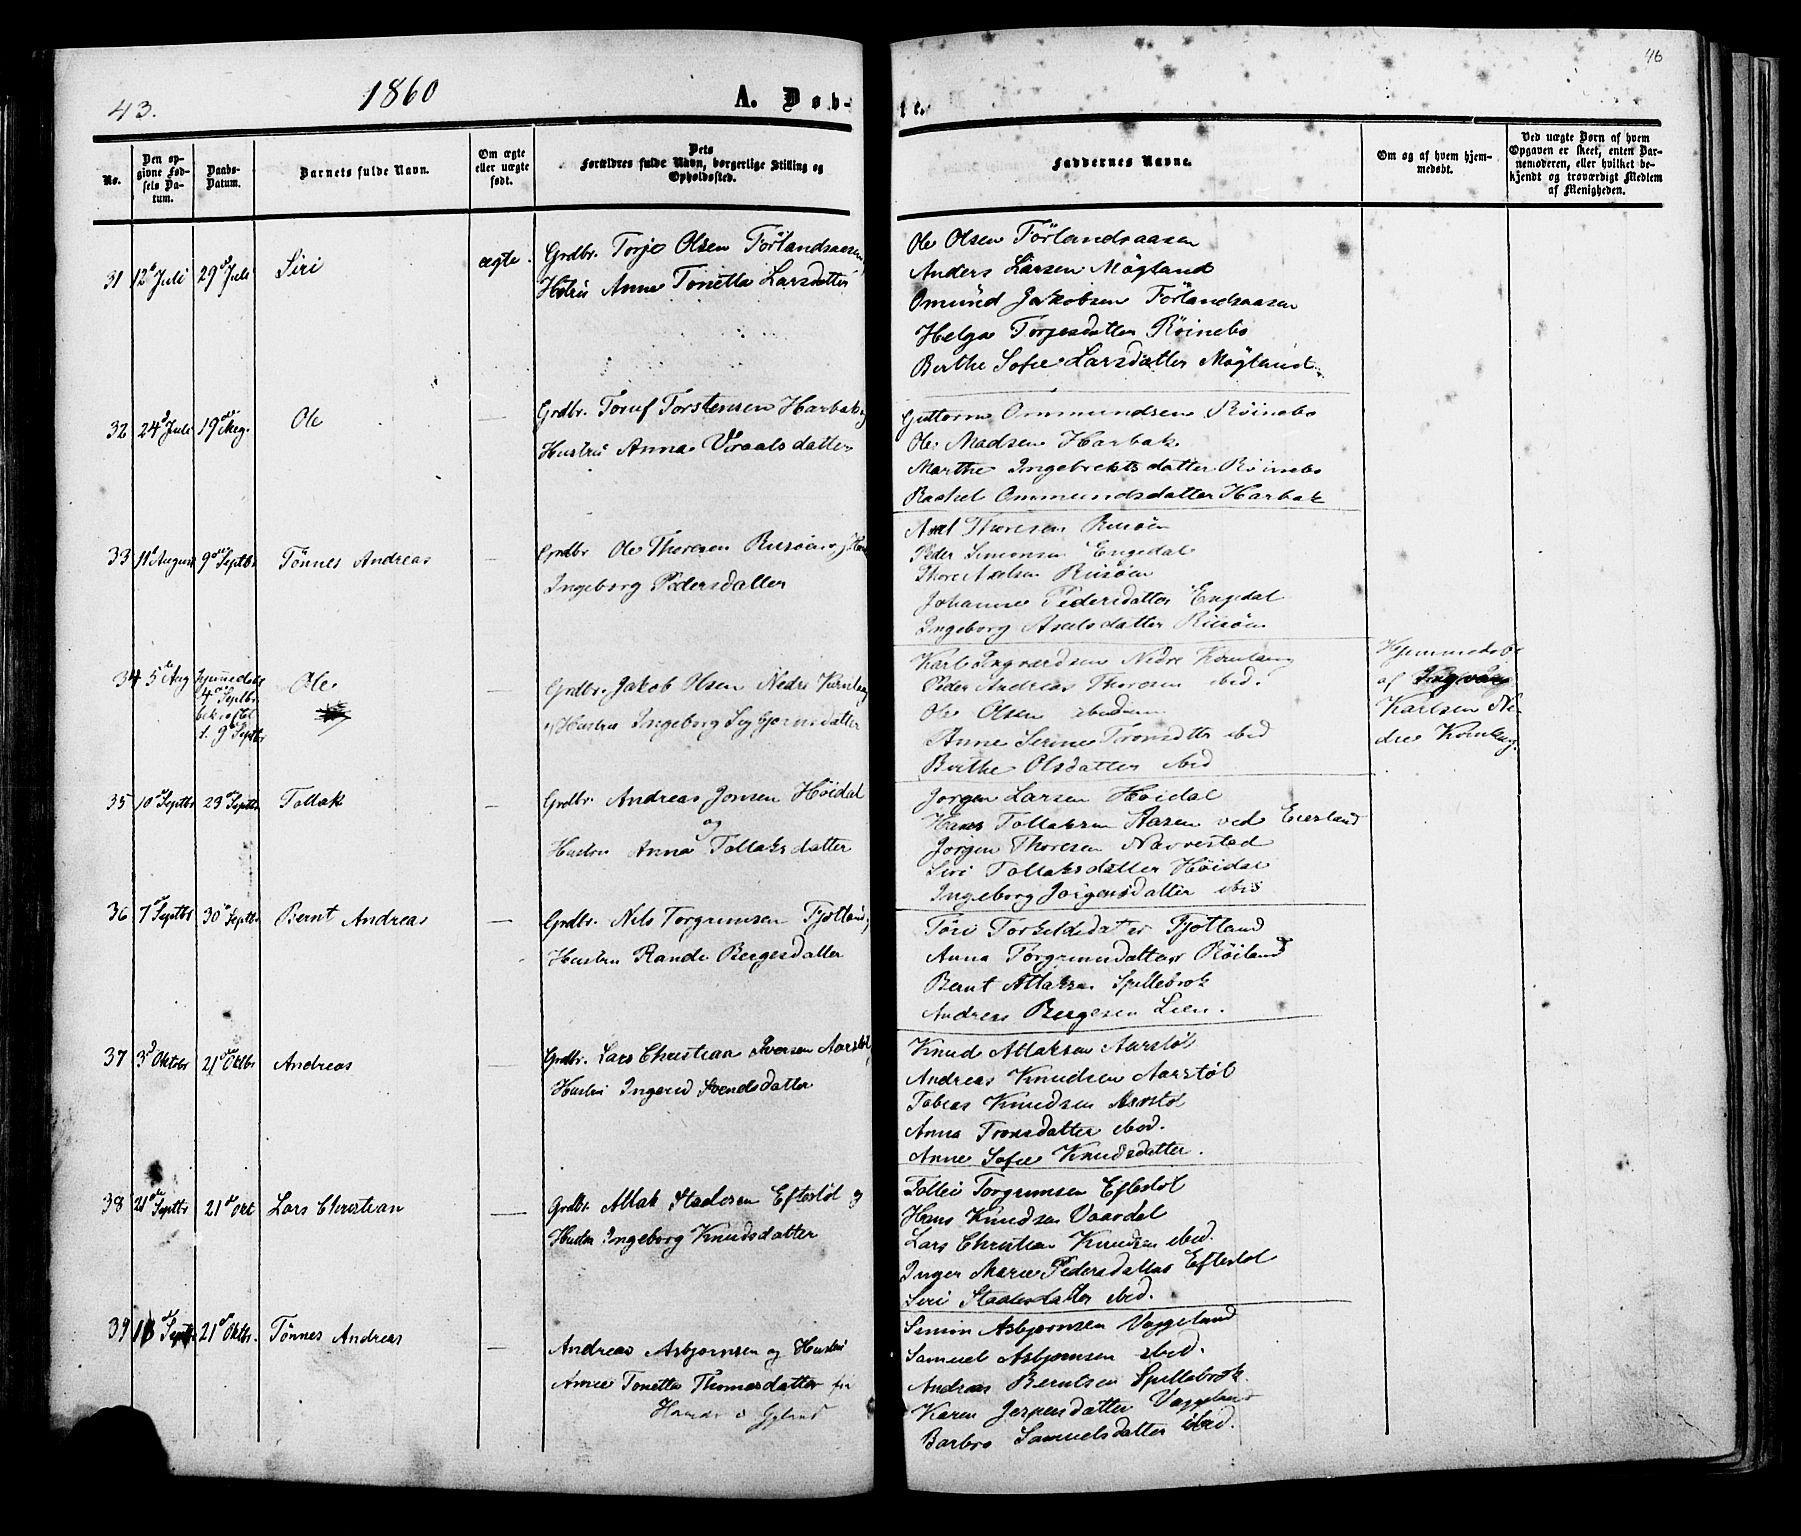 43.
1860
A. Døb-
te.
46
No.
Den opgivne Fødsels Datum.
Daabs-Datum.
Barnets fulde Navn.
Om ægte eller uægte født.
Dets Forældres fulde Navn, borgerlige Stilling og Opholdssted.
Faddernes Navne.
Om og af hvem hjemmedøbt.
Ved uægte Børn af hvem Opgaven er skeet, enten Barnemoderen, eller hvilket bekjendt og troværdigt Medlem af Menigheden.
31 12te Juli 29de Juli Siri ægte. Grdbr. Torje Olsen Förlandsaasen
Hstru Anne Tonette Larsdatter
Ole Olsen Förlandsaasen
Anders Larsen Mögland
Omünd Jakobsen Förlandsaasen
Helga Torjesdatter Röinebo
Berthe Sofie Larsdatter Mögland
32 24de Juli 19de Aug. Ole — Grdbr. Toruf Torstensen Harbak og
Hustru Anna Vraalsdatter
Guttorm Ommundsen Röinebo
Ole Madsen Harbak
Marthe Ingebrektsdatter Röinebo
Rachel Ommundsdatter Harbak
33 11te August 9de Septbr Tönnes Andreas — Grdbr Ole Thoresen Risöen
Ingeborg Pedersdatter
Axel Thoresen Risöen
Peder Simonsen Engedal
Thore Axelsen Risöen
Johanne Pedersdatter Engedal
Ingeborg Axelsdatter Risöen
34 5te Aug hjemmedøbt
4de Septbr
bekræftet
d. 9de Septbr
Ole — Grdbr. Jakob Olsen Nedre Kvinlaug
og Hustru Ingeborg Segbjørnsdatter
Karl Ingvardsen Nedre Kvinlaug
Peder Andreas Thoresen ibid.
Ole Olsen ibidem
Anne Serine Tronsdatter ibid
Berthe Olsdatter ibid
Hjemmedøbt
af
Karlsen Ne-
dre Kvinlaug.
35 10de Septbr 23de Septbr. Tollak — Grdbr. Andreas Jonsen Höidal
og
Hustru Anna Tollaksdatter
Jörgen Larsen Höidal
Hans Tollaksen Aasen ved Eiesland
Jörgen Thoresen Navrestad
Siri Tollaksdatter Höidal
Ingeborg Jörgensdatter ibid
36 7de Septbr 30de Septbr Bernt Andreas — Grdbr. Nils Torgrimsen Fjotland,
Hustru Rande Bergesdatter
Töri Torkeldsdatter Fjotland
Anna Torgrimsdatter Röiland
Bernt Atlaksen Spillebrok
Andreas Bergesen Lien.
37 3de Oktobr 21de Oktbr Andreas — Grdbr. Lars Christian Iversen Aarstöl,
Hustru Ingerid Svendsdatter
Knud Atlaksen Aarstöl
Andreas Knudsen Aarstöl
Tobias Knudsen Aarstöl
Anna Tronsdatter ibid.
Anne Sofie Knudsdatter.
38 21de Septbr 21de Okt Lars Christian — Grdbr. Atlak Stadesen Eftestöl og
Hustru Ingeborg Knudsdatter
Tollei Torgrimsen Eftestöl
Hans Knudsen Vaardal
Lars Christian Knudsen ibid.
Inger Marie Pedersdatter Eftestöl
Siri Stadesdatter ibid.
39 18de Septbr 21de Oktbr. Tönnes Andreas — Andreas Asbjørnsen og Hustru
Anne Tonette Thomasdatter fra
i Gyland
Simon Asbjørnsen Vaggeland
Samuel Asbjørnsen ibid.
Andreas Berntsen Spillebrok
Karen Jespersdatter Vaggeland
Barbro Samuelsdatter ibid.